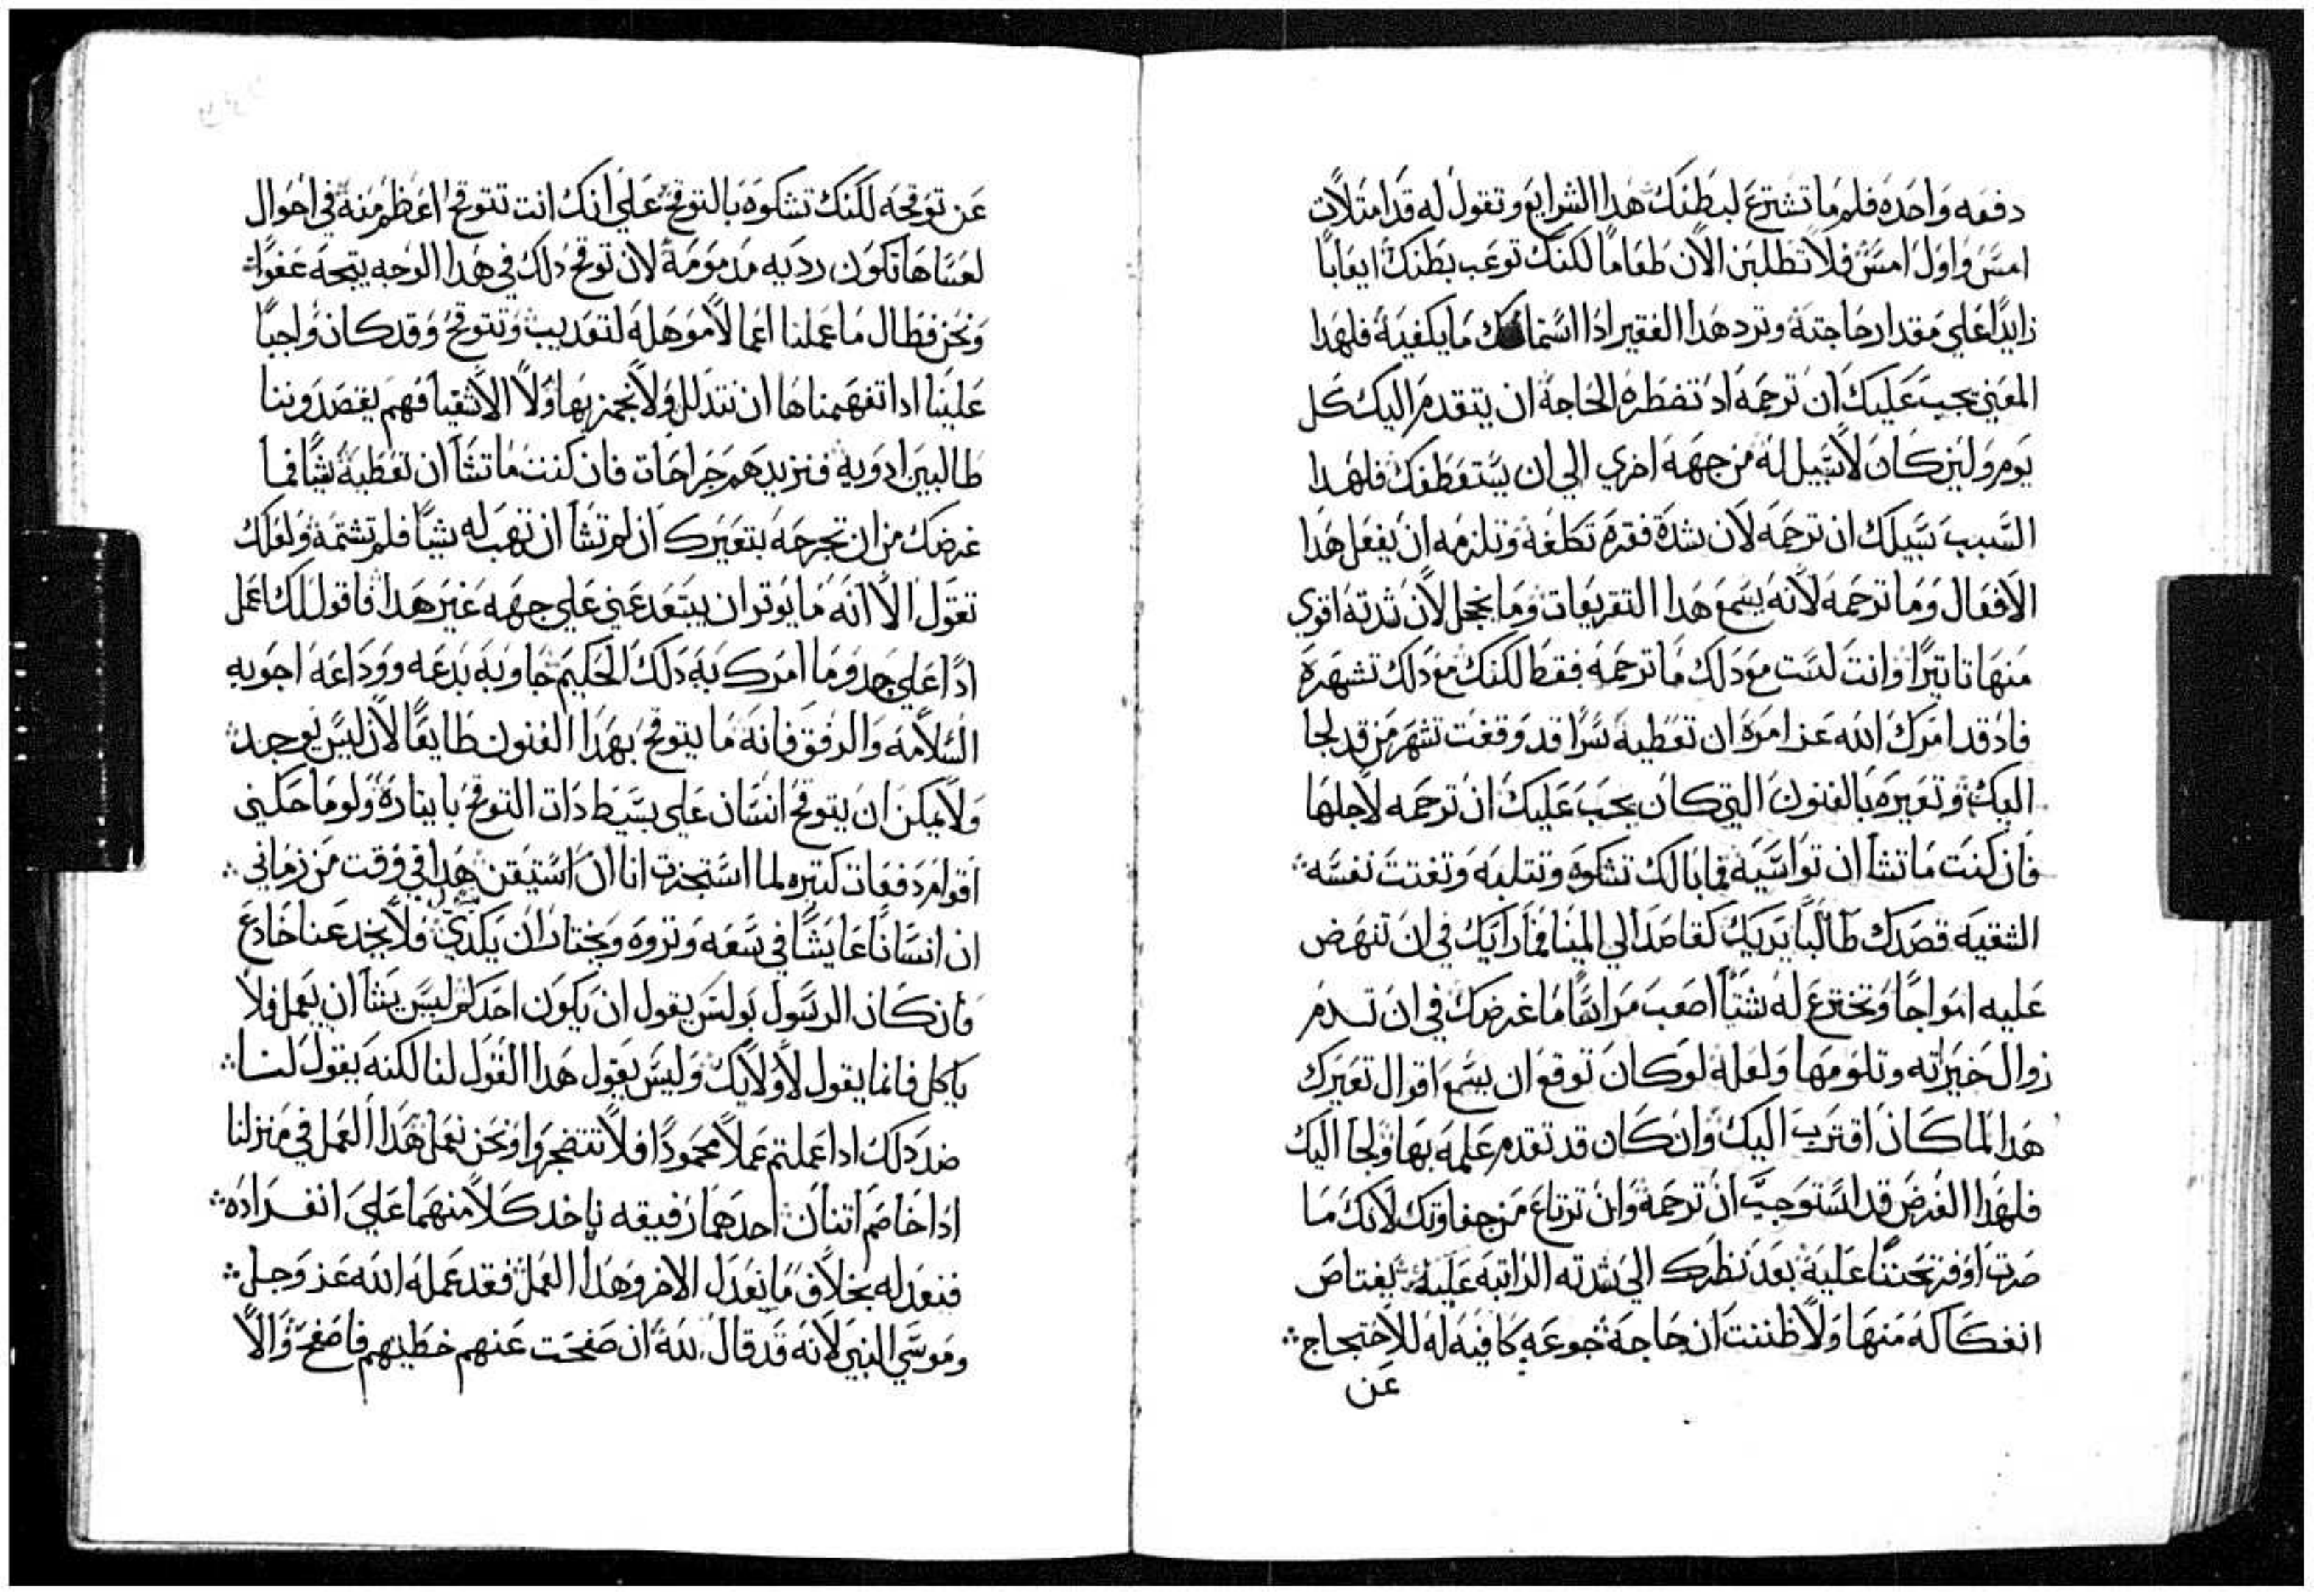 دفعه واحده فلم ما تشترع لبطنك هدا الشرايع وتقول له قد امتلات
امس واول امس فلا تطلبن الان طعاما لكنك توعب بطنك ايعابا
زايدا علي مقدار حاجته وترد هدا الفقير ادا استماحك ما يكفيه فلهدا
المعني يجب عليك ان ترحمه اد تضطره الحاجه ان يتقدم اليك كل
يوم ولين كان لا سبيل له من جهه اخري الي ان يستعطفك فلهدا
السبب سبيلك ان ترحمه لان شدة فقره تكلفه وتلزمه ان يفعل هدا
الافعال وما ترحمه لانه يسمع هدا التقريعات وما يخجل لان شدته اقوي
منها تاتيرا وانت لست مع دلك ما ترحمه فقط لكنك مع دلك تشهره
فاد قد امرك الله عز امره ان تعطيه سرا قد وقفت تشهر من قد لجا
اليك وتعيره بالفنون التي كان يجب عليك ان ترحمه لاجلها
فان كنت ما تشا ان تواسيه فما بالك تشكوه وتتلبه وتفتت نفسه
الشقيه قصدك طالبا يديك كقاصد الي المينا فما رايك في ان تنهض
عليه امواجا وتخترع له شتا اصعب مراسا ما غرضك في ان تدم
زوال خيراته وتلومها ولعله لو كان توقع ان يسمع اقوال تعيرك
هدا لما كان اقترب اليك وان كان قد تقدم علمه بها ولجا اليك
فلهدا الغرض قد استوجب ان ترحمه وان ترتاع من جفاوتك لانك ما
صرت اوفر تحننا عليه بعد نظرك الي شدته الراتبه عليه يغتاص
انفكاكه منها ولا ظننت ان حاجة جوعه كافيه له للاحتجاج
عن
عن توقحه لكنك تشكوه بالتوقح علي انك انت تتوقح اعظم منه في احوال
لعساها تكون رديه مدمومة لان توقح دلك في هدا الوجه يتجه عفوا
ونحن فطال ما عملنا اعمالا موهله لتعديب وتتوقح وقد كان واجبا
علينا ادا تفهمناها ان نتدلل ولا نجمز بها ولا الاشقيا فهم يقصدوننا
طالبين ادويه فنزيدهم جراحات فان كنت ما تشا ان تعطيه شيا فما
غرضك من ان تجرحه بتعيرك ان لم تشا ان تهب له شيا فلم تشتمه ولعلك
تقول الا انه ما يوتر ان يبتعد عني علي جهه غير هدا فاقول لك اعمل
ادا علي جهد وما امرك به دلك الحكيم جاوبه بدعه ووداعه اجوبه
السلامه والرفق فانه ما يتوقح بهدا الفنون طايعا لان ليس يوجد
ولا يمكن ان يتوقح انسان علي بسيط دات التوقح بايتاره ولو ماحكني
اقوام دفعات كتيره لما استجزت انا ان استيقن هدا في وقت من زماني
ان انسانا عايشا في سعه وتروه ويختار ان يكدي فلا يخدعنا خادع
فان كان الرسول بولس يقول ان يكون احدكم ليس يشا ان يعمل فلا
ياكل فانما يقول لاولايك وليس يقول هدا القول لنا لكنه يقول لنا
ضد دلك ادا عملتم عملا محمودا فلا تتضجروا ونحن نعمل هدا العمل في منزلنا
ادا خاصم اتنان احدهما رفيقه ناخد كلا منهما علي انفراده
فنعدله بخلاف ما نعدل الاخر وهدا العمل فقد عمله الله عز وجل
وموسي النبي لانه قد قال لله ان صفحت عنهم خطيتهم فاصفح والا